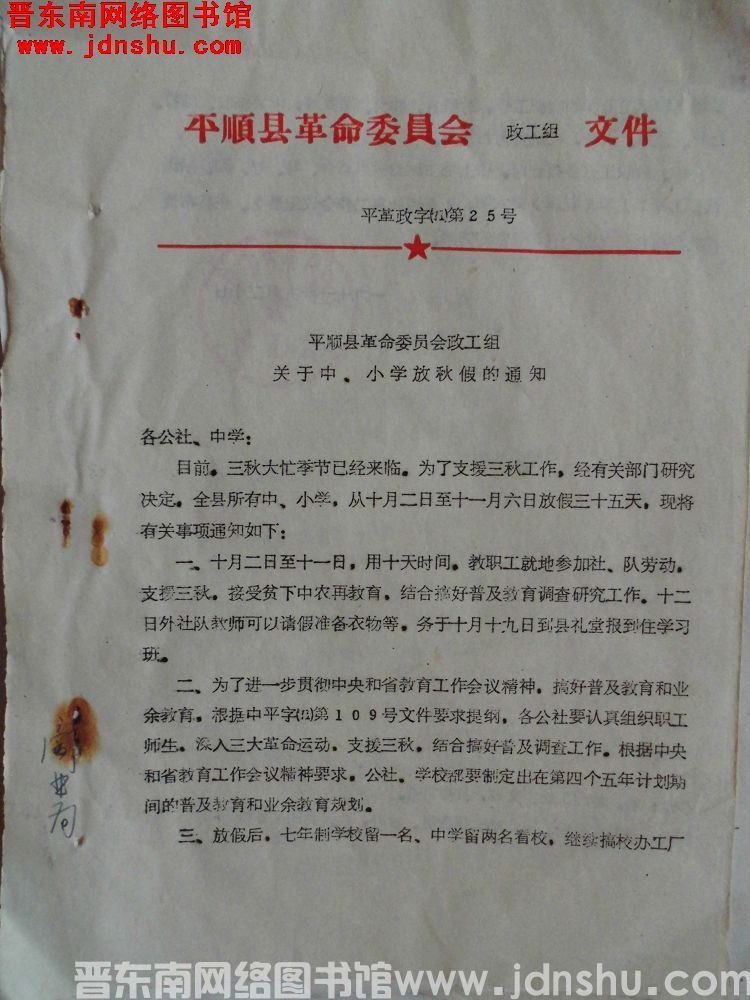 晋东南网络图书馆
www.jdnshu.com
平顺县革命委員会 政工组 文件
平革政字(71)第25号
平顺县革命委员会政工组
关于中、小学放秋假的通知
各公社、中学：
目前。三秋大忙季节已经来临。为了支援三秋工作，经有关部门研究
决定。全县所有中、小学，从十月二日至十一月六日放假三十五天，现将
有关事项通知如下：
一、十月二日至十一日，用十天时间。教职工就地参加社、队劳动，
支援三秋。接受贫下中农再教育。结合搞好普及教育调查研究工作。十二
日外社队教师可以请假准备衣物等。务于十月十九日到县礼堂报到住学习
班。
二、为了进一步贯彻中央和省教育工作会议精神。搞好普及教育和业
余教育。根据中平字(71)第109号文件要求提纲，各公社要认真组织职工
师生。深入三大革命运动。支援三秋。结合搞好普及调查工作。根据中央
和省教育工作会议精神要求。公社。学校都要制定出在第四个五年计划期
间的普及教育和业余教育规划。
三、放假后。七年制学校留一名、中学留两名看校，继续搞校办工厂
晋东南网络图书馆www.jdnshu.com